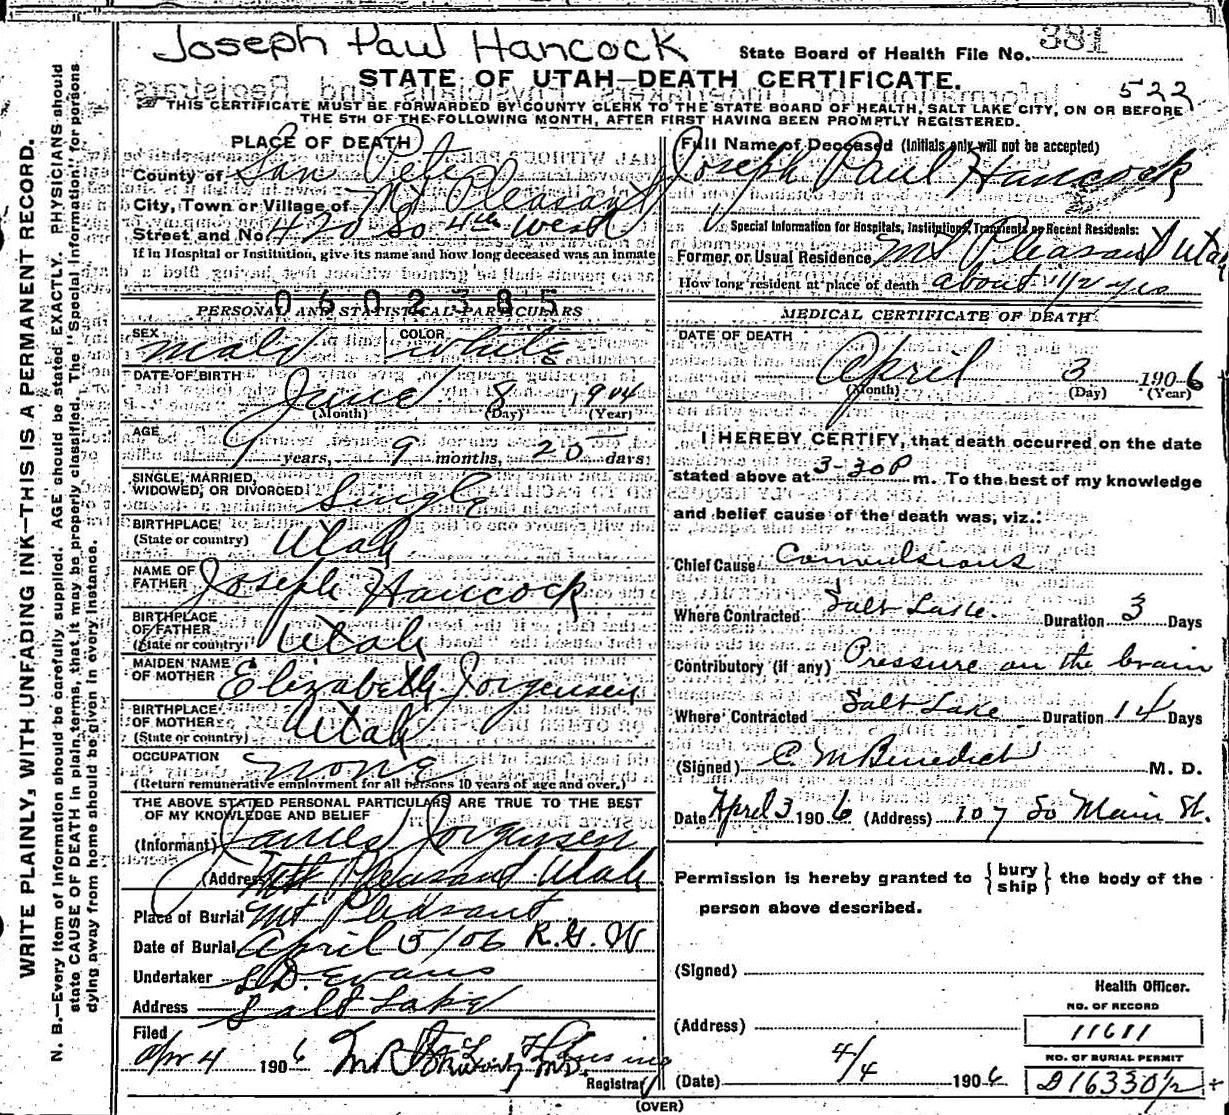 Joseph Paul Hancock
State Board of Health File No. 381
STATE OF UTAH—DEATH CERTIFICATE.
522
THIS CERTIFICATE MUST BE FORWARDED BY COUNTY CLERK TO THE STATE BOARD OF HEALTH, SALT LAKE CITY, ON OR BEFORE
THE 5TH OF THE FOLLOWING MONTH, AFTER FIRST HAVING BEEN PROMPTLY REGISTERED.
WRITE PLAINLY, WITH UNFADING INK—THIS IS A PERMANENT RECORD.
N. B.—Every item of information should be carefully supplied. AGE should be stated EXACTLY. PHYSICIANS should
state CAUSE OF DEATH in plain terms, that it may be properly classified. The "Special Information" for persons
dying away from home should be given in every instance.
PLACE OF DEATH
County of San Pete
City, Town or Village of Mt Pleasant
Street and No. 420 So 4th West
If in Hospital or Institution, give its name and how long deceased was an inmate
0602385
PERSONAL AND STATISTICAL PARTICULARS
SEX male COLOR white
DATE OF BIRTH June 8 1904
(Month) (Day) (Year)
AGE 1 years, 9 months, 25 days
SINGLE, MARRIED, WIDOWED, OR DIVORCED Single
BIRTHPLACE (State or country) Utah
NAME OF FATHER Joseph Hancock
BIRTHPLACE OF FATHER (State or country) Utah
MAIDEN NAME OF MOTHER Elizabeth Jorgensen
BIRTHPLACE OF MOTHER (State or country) Utah
OCCUPATION none
(Return remunerative employment for all persons 10 years of age and over.)
THE ABOVE STATED PERSONAL PARTICULARS ARE TRUE TO THE BEST
OF MY KNOWLEDGE AND BELIEF
(Informant) James Jorgensen
(Address) Mt Pleasant Utah
Place of Burial Mt Pleasant
Date of Burial April 5/06 R.G.W
Undertaker S.D. Evans
Address Salt Lake
Filed
Apr 4 1906
Registrar
Full Name of Deceased (Initials only will not be accepted)
Joseph Paul Hancock
Special Information for Hospitals, Institutions, Transients or Recent Residents:
Former or Usual Residence Mt Pleasant Utah
How long resident at place of death about 1 1/2 yrs
MEDICAL CERTIFICATE OF DEATH
DATE OF DEATH
April 3 1906
(Month) (Day) (Year)
I HEREBY CERTIFY, that death occurred on the date
stated above at 3-30 P m. To the best of my knowledge
and belief cause of the death was, viz.:
Chief Cause Convulsions
Where Contracted Salt Lake Duration 3 Days
Contributory (if any) Pressure on the brain
Where Contracted Salt Lake Duration 14 Days
(Signed) C. M Benedict M. D.
Date April 3 1906 (Address) 107 So Main St.
Permission is hereby granted to {bury ship} the body of the
person above described.
(Signed)
Health Officer.
NO. OF RECORD
(Address) 11611
NO. OF BURIAL PERMIT
(Date) 4/4 1906 D16330 1/2
(OVER)